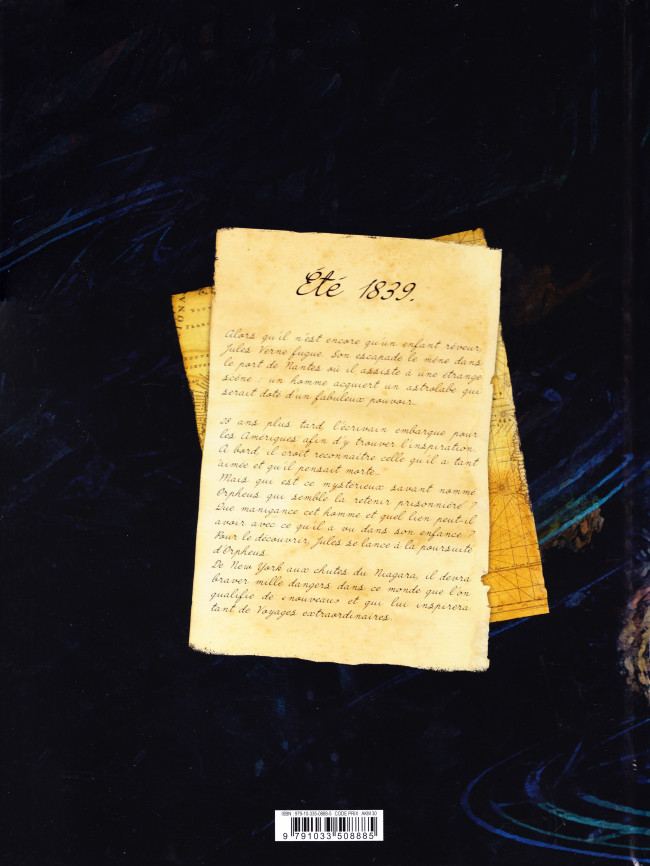 Été 1839.
Alors qu'il n'est encore qu'un enfant rêveur,
Jules Verne fugue. Son escapade le mène dans
le port de Nantes où il assiste à une étrange
scène : un homme acquiert un astrolabe qui
serait doté d'un fabuleux pouvoir...
28 ans plus tard, l'écrivain embarque pour
les Amériques afin d'y trouver l'inspiration.
À bord, il croit reconnaître celle qu'il a tant
aimée et qu'il pensait morte...
Mais qui est ce mystérieux savant nommé
Orpheus qui semble la retenir prisonnière ?
Que manigance cet homme et quel lien peut-il
avoir avec ce qu'il a vu dans son enfance ?
Pour le découvrir, Jules se lance à la poursuite
d'Orpheus.
De New York aux chutes du Niagara, il devra
braver mille dangers dans ce monde que l'on
qualifie de «nouveau» et qui lui inspirera
tant de Voyages extraordinaires.
ISBN : 979-10-335-0888-5 CODE PRIX : AKM 30
9 791033 508885